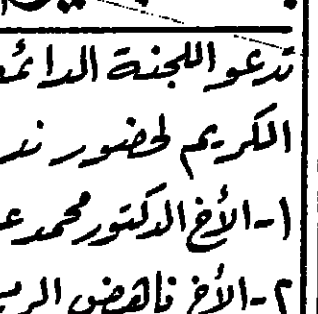 تدعو اللجنة الدائمة
الكريم لحضور ند
١- الأخ الدكتور محمد ع
٢- الأخ ناهض الر